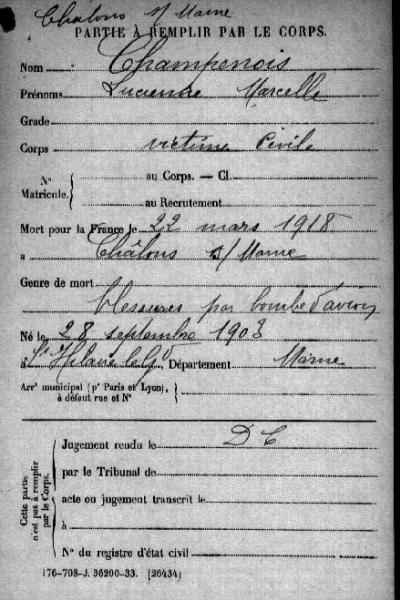 Châlons s/ Marne
PARTIE À REMPLIR PAR LE CORPS.
Nom Champenois
Prénoms Lucienne Marcelle
Grade
Corps victime Civile
N° Matricule. { au Corps. — Cl.
au Recrutement
Mort pour la France le 22 mars 1918
à Châlons s/ Marne
Genre de mort
blessures par bombe d'avion
Né le 28 septembre 1903
à St Hilaire le Gd, Département Marne
Arrt municipal (pr Paris et Lyon),
à défaut rue et N°
Cette partie n'est pas à remplir par le Corps.
Jugement rendu le D C
par le Tribunal de
acte ou jugement transcrit le
à
N° du registre d'état civil
176-708-J. 36200-33. [26434]